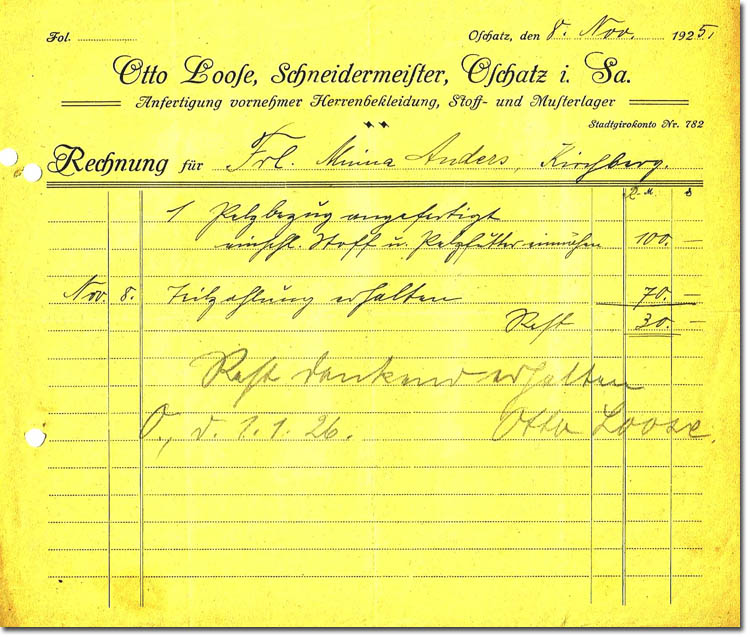 Fol.
Oschatz, den 8. Nov. 1925.
Otto Loose, Schneidermeister, Oschatz i. Sa.
Anfertigung vornehmer Herrenbekleidung, Stoff- und Musterlager
Stadtgirokonto Nr. 782
Rechnung für Frl. Minna Anders, Kirchberg.
R. M. ₰
1 Pelzbezug angefertigt
einschl. Stoff u. Pelzfutter einnähen 100. —
Nov. 8. Teilzahlung erhalten 70. —
Rest 30. —
Rest dankend erhalten
O., d. 1.1.26. Otto Loose.